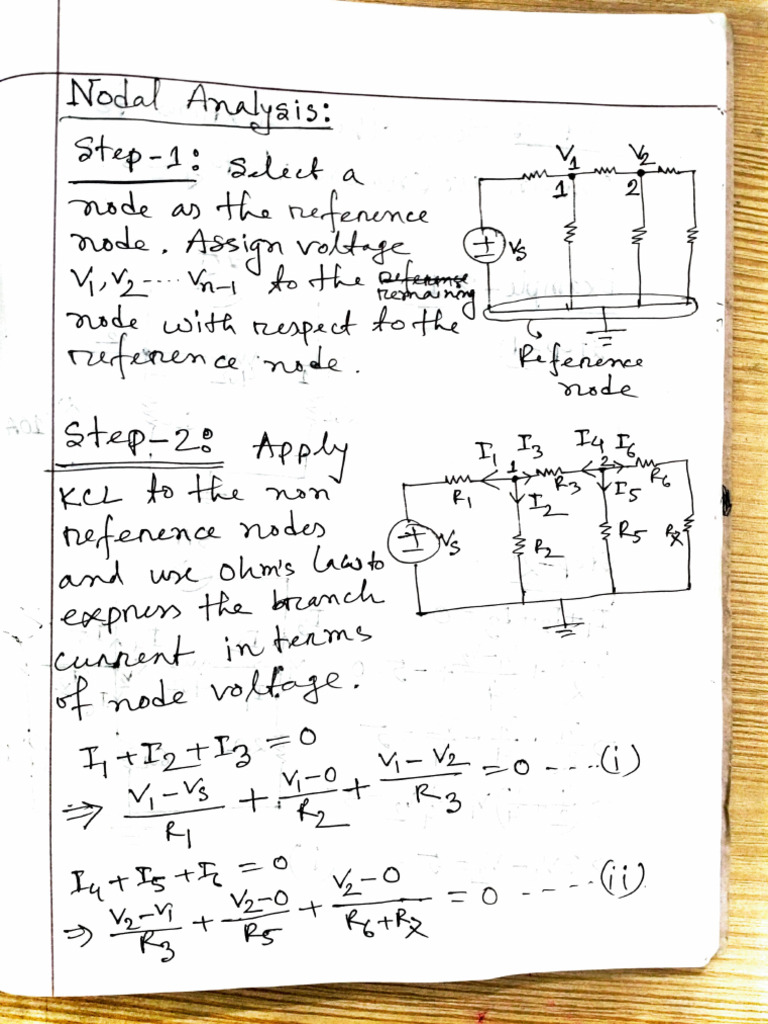 Nodal Analysis:
Step-1: Select a
node as the reference
node. Assign voltage
V1, V2---- Vn-1 to the remaining
node with respect to the
reference node.
V1 V2
1 2
+ Vs
Reference
node
Step-2: Apply
KCL to the non
reference nodes
and use ohm's law to
express the branch
current in terms
of node voltage.
I1 I3 I4 I6
1 2
R1 R3 R6
I2 I5
+ Vs R2 R5 R7
I1 + I2 + I3 = 0
⇒ (V1 - Vs)/R1 + (V1 - 0)/R2 + (V1 - V2)/R3 = 0 ----- (i)
I4 + I5 + I6 = 0
⇒ (V2 - V1)/R3 + (V2 - 0)/R5 + (V2 - 0)/(R6 + R7) = 0 ----- (ii)